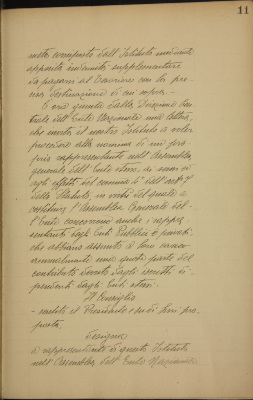 11
nostro composto dell'Istituto mediante
apposita indennità supplementare
da pagarsi al Cassiere con la pre-
cisa destinazione di cui sopra.-
È ora giunta dalla Direzione Cen-
trale dell'Ente Nazionale una lettera,
che invita il nostro Istituto a voler
procedere alla nomina di un pro-
prio rappresentante nell'Assemblea
generale dell'Ente stesso, ai sensi ed
agli effetti del comma 4° dell'art. 7
dello Statuto, in virtù del quale a
costituire l'Assemblea Generale del-
l'Ente concorrono anche i rappre-
sentanti degli Enti Pubblici e privati,
che abbiano assunto a loro carico
annualmente una quota parte del
contributo dovuto dagli iscritti di-
pendenti dagli Enti stessi.
Il Consiglio
- sentito il Presidente e su di lui pro-
posta;
designa
a rappresentante di questo Istituto
nell'Assemblea dell'Ente Nazionale